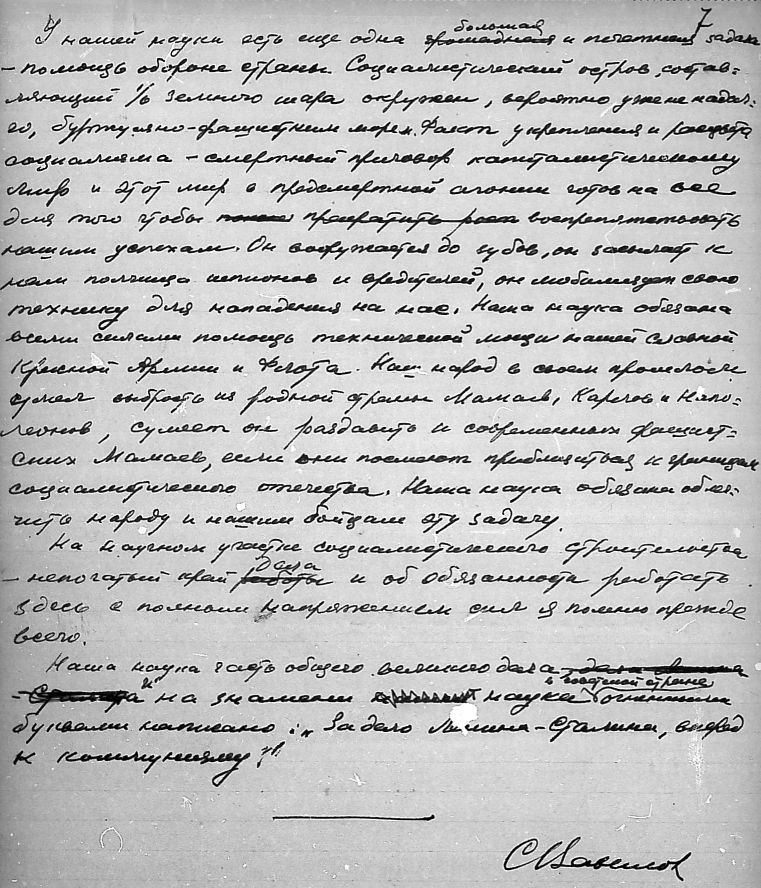 7
У нашей науки есть еще одна громадная большая и почетная задача
– помощь обороне страны. Социалистический остров, состав-
ляющий 1/6 земного шара окружен, вероятно уже не надол-
го, буржуазно-фашистким морем. Факт укрепления и расцвета
социализма – смертный приговор капиталистическому
миру и этот мир в предсмертной агонии готов на все
для того чтобы прекратить рост воспрепятствовать
нашим успехам. Он вооружается до зубов, он засылает к
нам полчища шпионов и вредителей, он мобилизует свою
технику для нападения на нас. Наша наука обязана
всеми силами помощь технической мощи нашей славной
Красной Армии и Флота. Наш народ в своем прошлом
сумел выбрость из родной страны Мамаев, Карлов и Напо-
леонов, сумеет он раздавить и современных фашист-
ских Мамаев, если они посмеют приблизиться к границам
социалистического отечества. Наша наука обязана облег-
чить народу и нашим бойцам эту задачу.
На научном участке социалистического строительства
– непочатый край работы дела и об обязанности работать
здесь с полным напряжением сил я помню прежде
всего.
Наша наука часть общего великого дела дела Ленина
– Сталина и на знамени науки в советской стране огненными
буквами написано: „За дело Ленина–Сталина, вперед
к коммунизму!"
С Вавилов